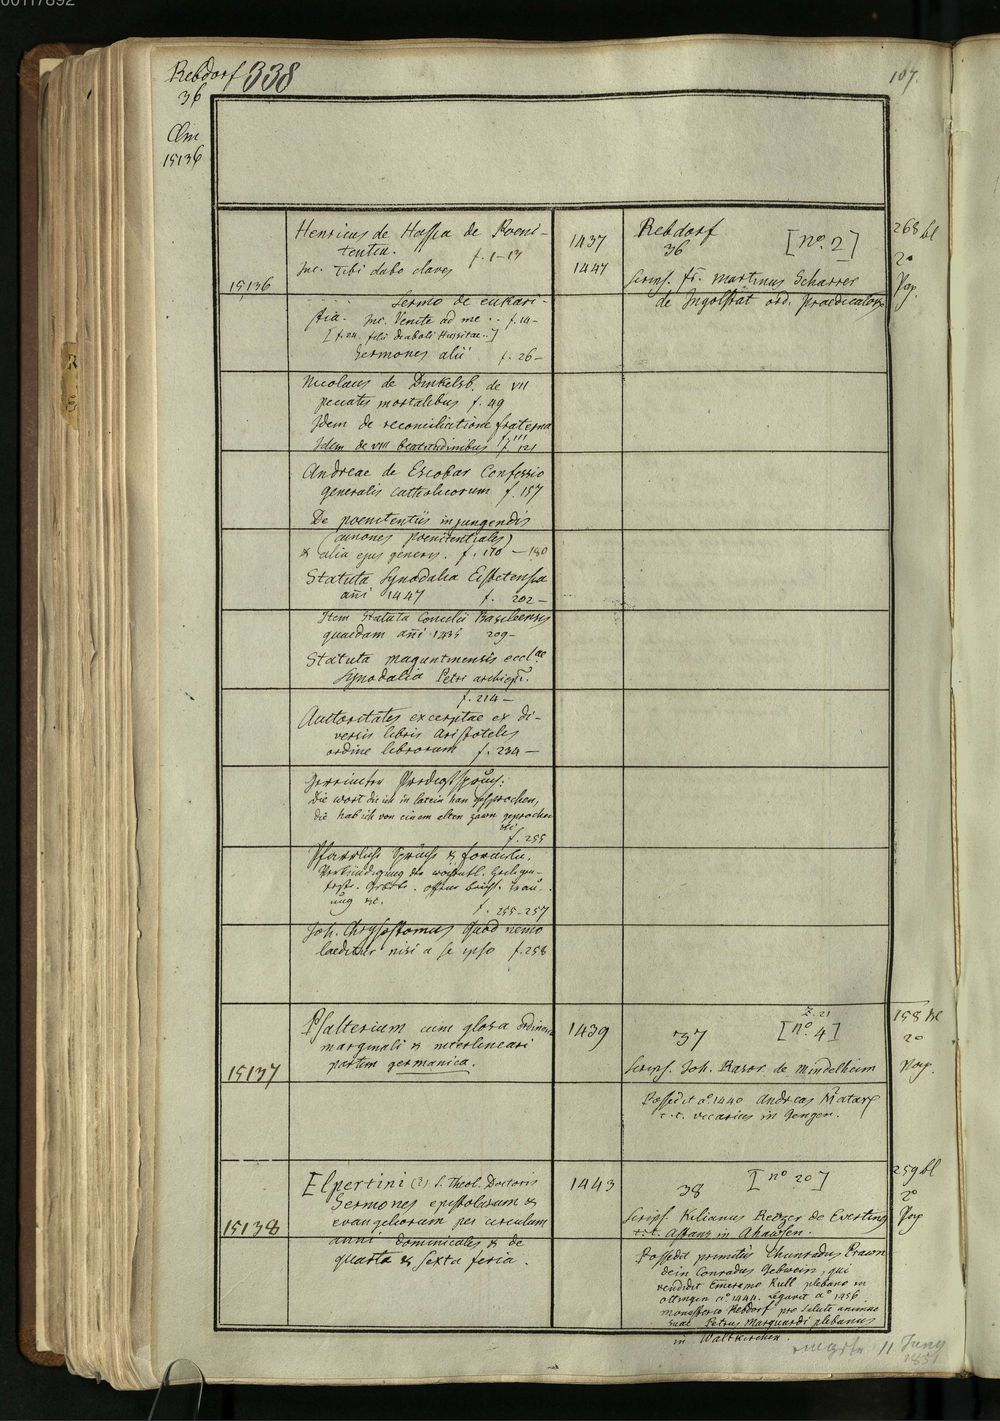 00117892
Rebdorf 338
36
Clm
15136
107.
Henricus de Hassia de Poeni-
tentia. f. 1-13
Inc. Tibi dabo claves
15136
1437
1447
Rebdorf
36 [no. 2]
Scrips. fr. Martinus Scharrer
de Ingolstat ord. Praedicatorum
268 bl
2o
Pap.
Sermo de eukari-
stia. Inc. Venite ad me .. f. 14-
[f. 24. filii diaboli Hussitae..]
Sermones alii f. 26-
Nicolaus de Dinkelsb. de VII
peccatis mortalibus f. 49
Idem de reconciliatione fraterna
f. 111
Idem de VIII beatitudinibus f. 121
Andreae de Escobar Confessio
generalis catholicorum f. 157
De poenitentiis injungendis
(canones poenitentiales)
& alia ejus generis. f. 170-180
Statuta Synodalia Eistetensia
ani 1447 f. 202-
Item Statuta Concilii Basileensis
quaedam ani 1435 209-
Statuta maguntinensis eccl.ae
Synodalia Petri archiepi.
f. 214-
Auctoritates excerptae ex di-
versis libris Aristotelis
ordine librorum f. 234-
Gereimter Predigtspruch:
Die wort die ich in latein han gesprochen,
die hab ich von einem alten zawn geprochen
etc
f. 255
Pfarrliche Sprüche & formulae.
Verkündigung der wöchentl. Heiligen-
f. 255-257
Joh. Chrysostomus Quod nemo
laeditur nisi a se ipso f. 258
15137
Psalterium cum glosa ordinaria
marginali & interlineari
partim germanica.
1439
Z. 21
37 [no. 4]
Scrips. Joh. Rasor de Mindelheim
158 bl
2o
Pap.
Possedit ao. 1440 Andreas
t. t. vicarius in Gengen.
15138
Elpertini (?) S. Theol. Doctoris
Sermones epistolarum &
evangeliorum per circulum
anni dominicales & de
quarta & sexta feria.
1443
38 [no 20]
Scrips. Kilianus Retzer de Everting
t. t. Astans in Ahausen.
259 bl
2o
Pap
Possedit primitus Chunradus Prawn
dein Conradus Gebwein, qui
vendidit Emeramo Kull plebano in
Ottingen ao 1444. legavit ao 1456
monasterio Rebdorf pro salute animae
suae Petrus Marquardi plebanus
in Waltkirchen.
11 Juny
1851